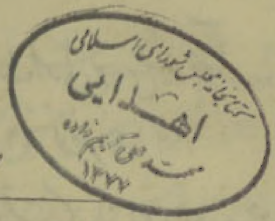 کتابخانه مجلس شورای اسلامی
اهدایی
سید محمد علی کریم زاده
۱۳۷۷